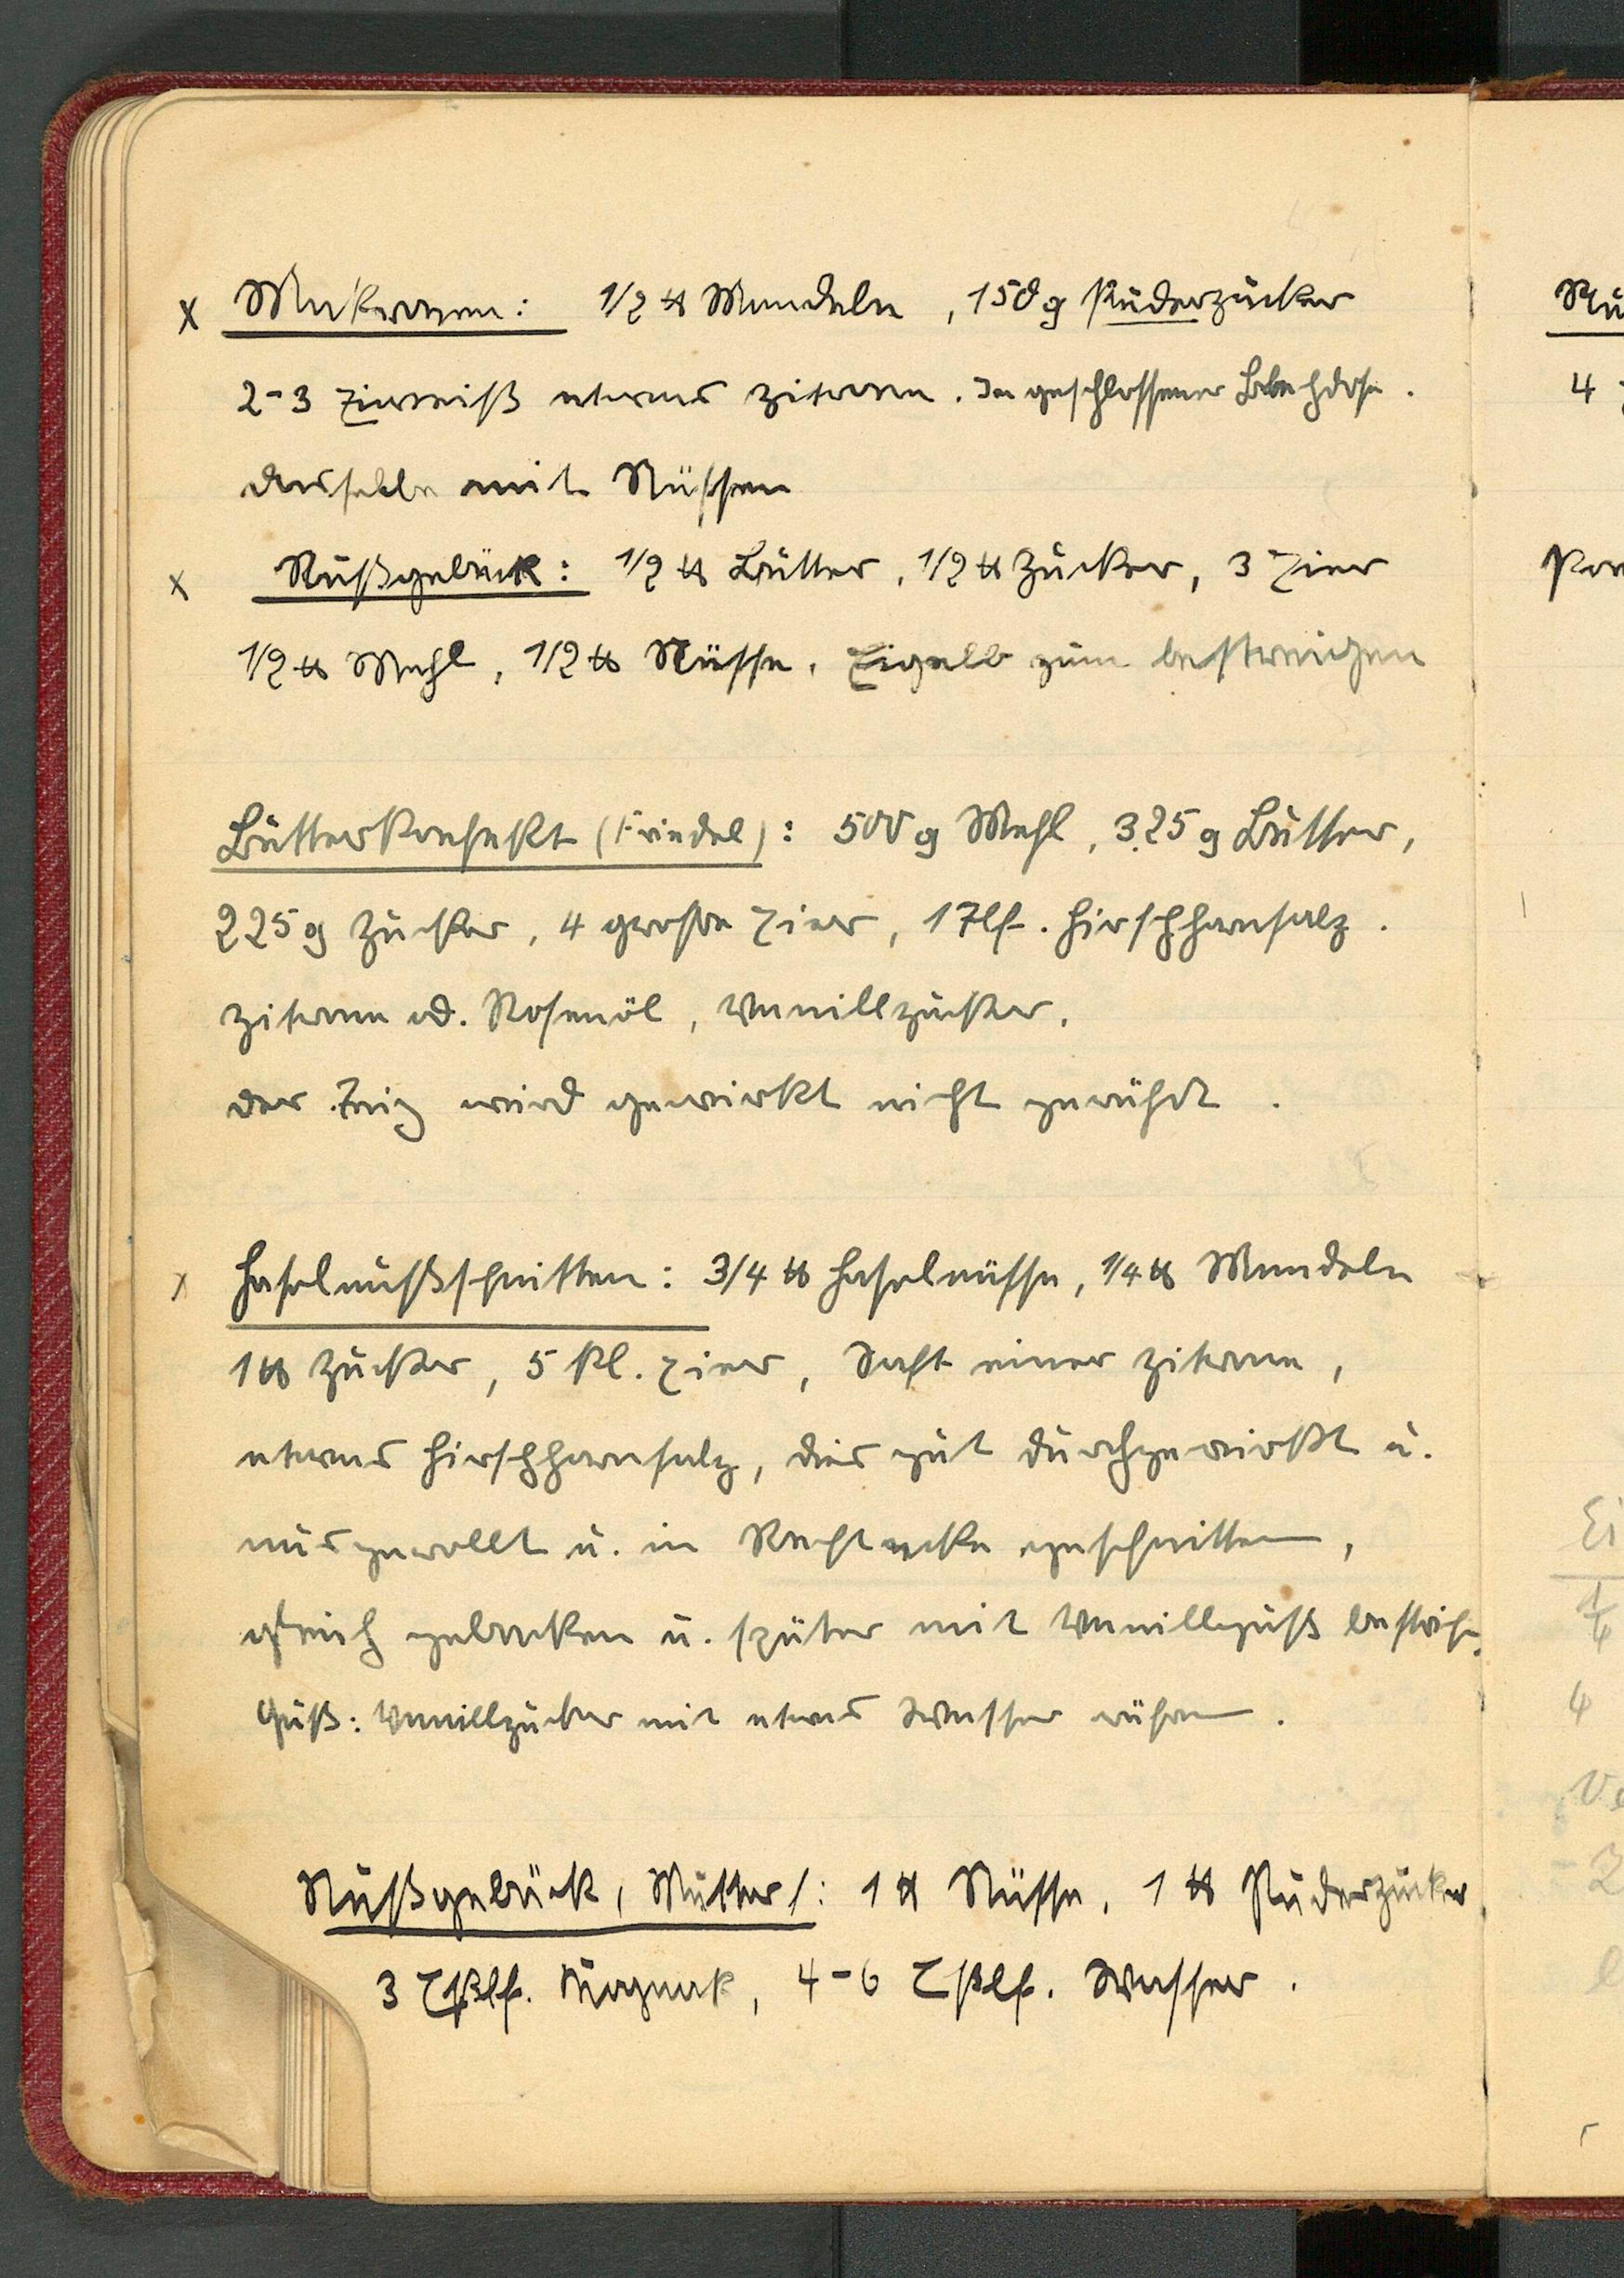 x Makronen: 1/2 ℔ Mandeln, 150 g Puderzucker
2-3 Eierweiß etwas Zitrone. In geschlossener Blechdose.
dasselbe mit Nüssen
x Nußgebäck: 1/2 ℔ Butter, 1/2 ℔ Zucker, 3 Eier
1/2 ℔ Mehl, 1/2 ℔ Nüsse. Eigelb zum bestreichen
Butterkonfekt (Friedel): 500 g Mehl, 325 g Butter,
225 g Zucker, 4 große Eier, 1 Tlf. Hirschhornsalz.
Zitrone od. Rosenöl, Vanillzucker.
der Teig wird gewirkt nicht gerührt.
x Haselnußschnitten: 3/4 ℔ Haselnüsse, 1/4 ℔ Mandeln
1 ℔ Zucker, 5 kl. Eier, Saft einer Zitrone,
etwas Hirschhornsalz, dies gut durchgewirkt u.
ausgerollt u. in Rechtecke geschnitten,
gleich gebacken u. später mit Vanillguß bestrich.
Guß: Vanillzucker mit etwas Wasser rühren.
Nußgebäck (Mutter): 1 ℔ Nüsse, 1 ℔ Puderzucker
3 Eßlf. Kognak, 4-6 Eßlf. Wasser.
Nu
4
Ei
4